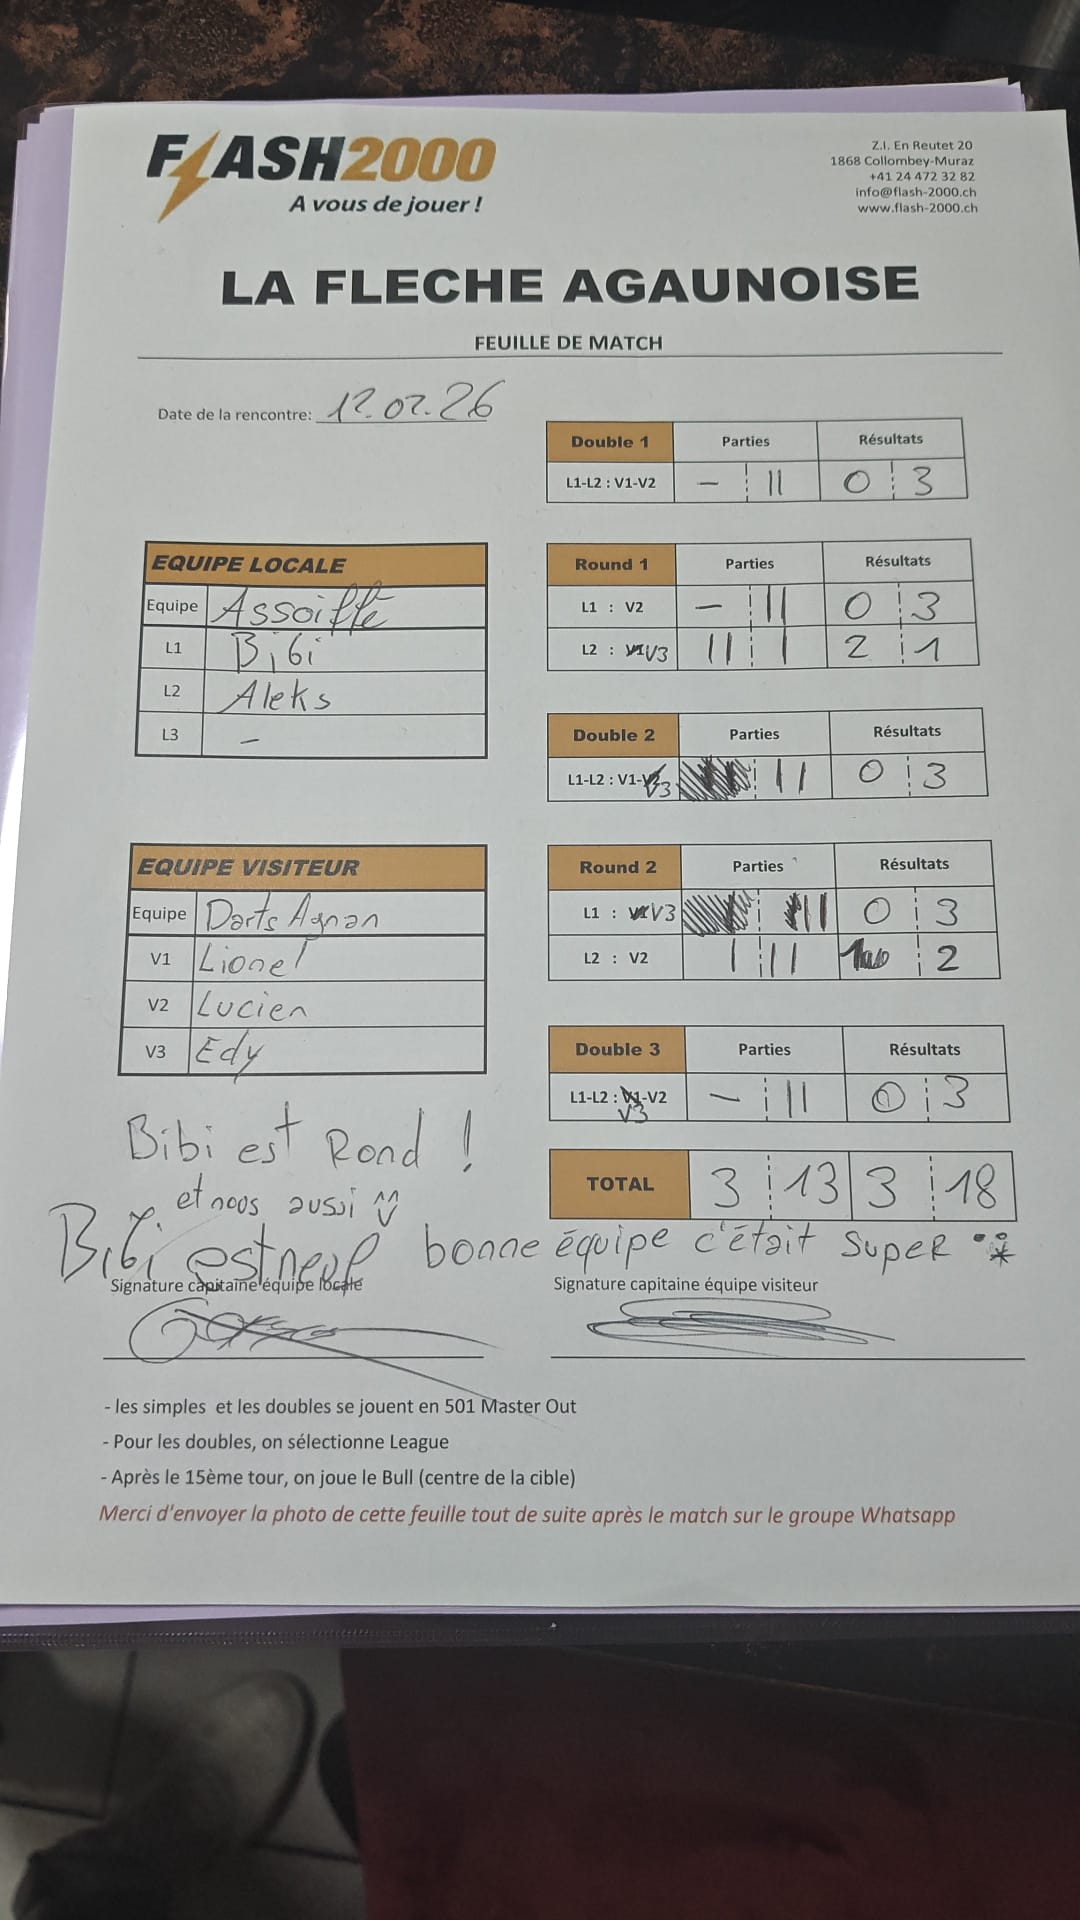 FLASH2000
A vous de jouer !
Z.I. En Reutet 20
1868 Collombey-Muraz
+41 24 472 32 82
info@flash-2000.ch
www.flash-2000.ch
LA FLECHE AGAUNOISE
FEUILLE DE MATCH
Date de la rencontre: 12.02.26
Double 1 Parties Résultats
L1-L2 : V1-V2 – || 0 3
EQUIPE LOCALE
Equipe Assoiffé
L1 Bibi
L2 Aleks
L3 –
Round 1 Parties Résultats
L1 : V2 – || 0 3
L2 : V3 || | 2 1
Double 2 Parties Résultats
L1-L2 : V1-V3 || 0 3
EQUIPE VISITEUR
Equipe Darts Agnan
V1 Lionel
V2 Lucien
V3 Edy
Round 2 Parties Résultats
L1 : V3 || 0 3
L2 : V2 | || 2
Double 3 Parties Résultats
L1-L2 : V1-V2 – || 0 3
V3
TOTAL 3 13 3 18
Bibi est Rond !
et nous aussi
Bibi est neuf bonne équipe c'était super
Signature capitaine équipe locale
Signature capitaine équipe visiteur
- les simples et les doubles se jouent en 501 Master Out
- Pour les doubles, on sélectionne League
- Après le 15ème tour, on joue le Bull (centre de la cible)
Merci d'envoyer la photo de cette feuille tout de suite après le match sur le groupe Whatsapp